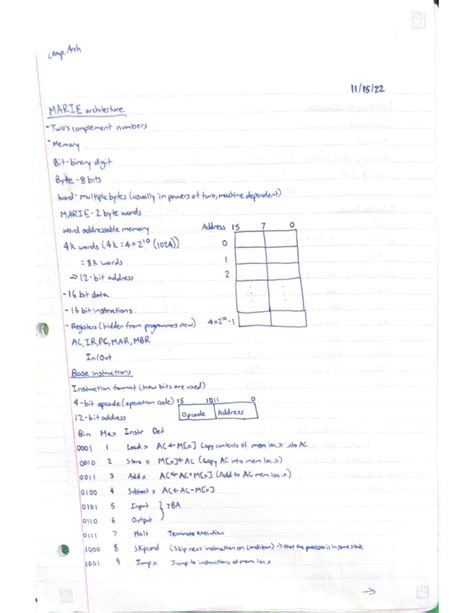 Comp. Arch
11/15/22
MARIE architecture
- Two's complement numbers
- Memory
Bit - binary digit
Byte - 8 bits
Word - Multiple bytes (usually in powers of two, machine dependent)
MARIE - 2 byte words
Word addressable memory
Address 15 7 0
4k words (4k = 4×2^10 (1024))
0
= 8k words
1
⇒ 12-bit address
2
- 16 bit data
- 16 bit instructions
- Registers (hidden from programmers view)
4×2^10-1
AC, IR, PC, MAR, MBR
In/Out
Base instructions
Instruction format (how bits are used)
4-bit opcode (operation code)
15 1011 0
12-bit address
Opcode Address
Bin Hex Instr Def
0001 1 Load x AC←M[x] Copy contents of mem loc. x into AC
0010 2 Store x M[x]←AC (Copy AC into mem loc. x)
0011 3 Add x AC←AC+M[x] (Add to AC mem loc. x)
0100 4 Subtract x AC←AC-M[x]
0101 5 Input } TBA
0110 6 Output
0111 7 Halt Terminate execution
1000 8 Skipcond (Skip next instruction on condition) → that the processor is in some state
1001 9 Jump x Jump to instructions at mem loc. x
→